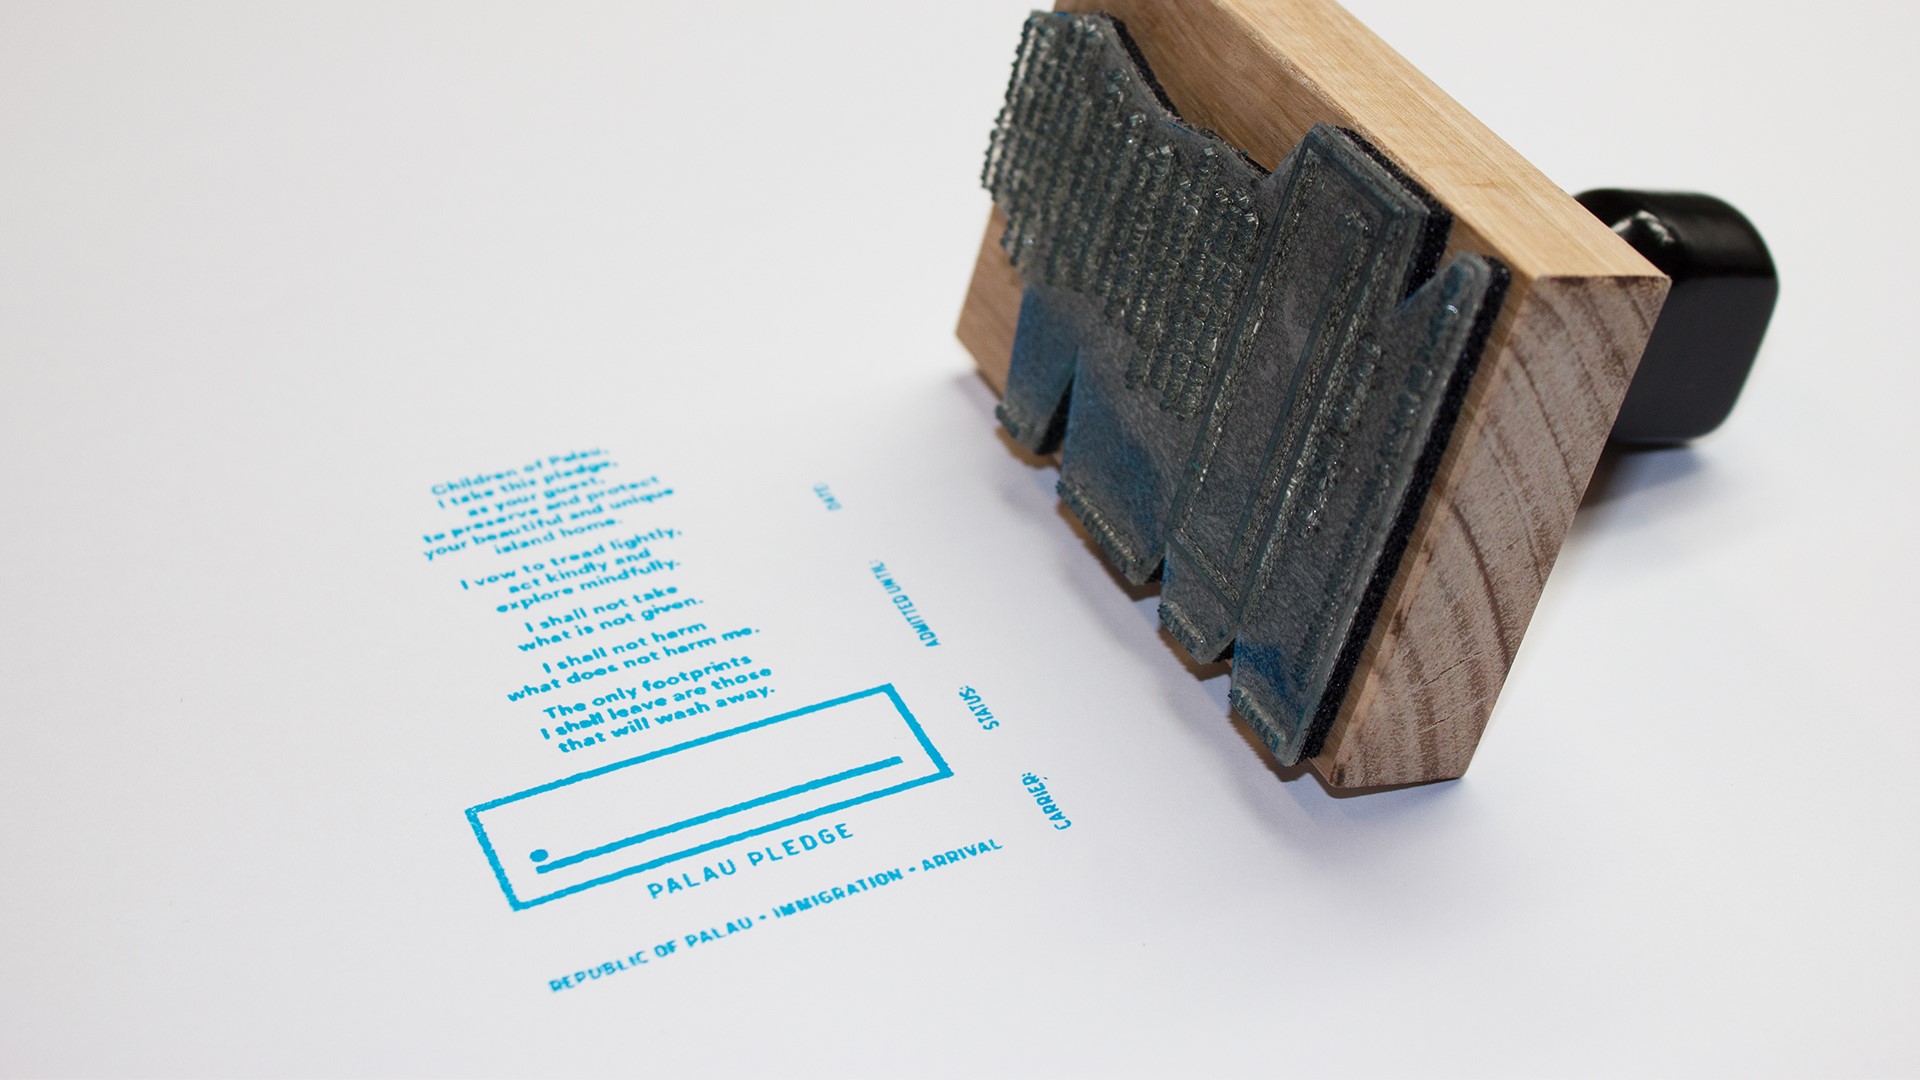 Children of Palau,
I take this pledge,
as your guest,
to preserve and protect
your beautiful and unique
island home.
I vow to tread lightly,
act kindly and
explore mindfully.
I shall not take
what is not given.
I shall not harm
what does not harm me.
The only footprints
I shall leave are those
that will wash away.
PALAU PLEDGE
REPUBLIC OF PALAU • IMMIGRATION • ARRIVAL
DATE:
ADMITTED UNTIL:
STATUS:
CARRIER: